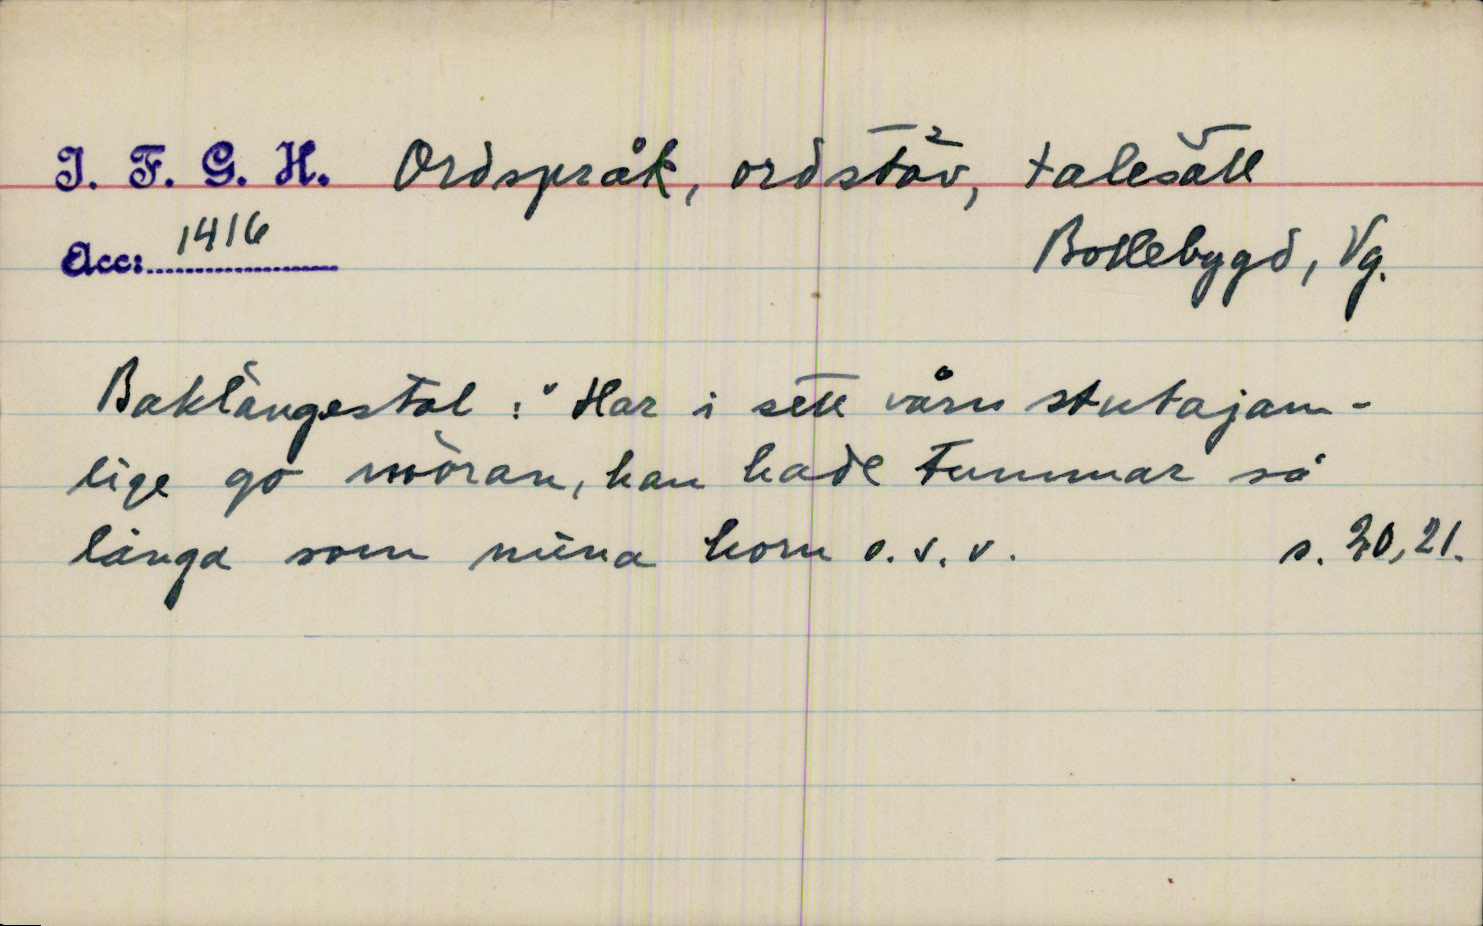 I. F. G. H. Ordspråk, ordstäv, talesätt
Acc: 1416
Bollebygd, Vg.
Baklängestal: "Har i sett våru stutajam-
lige go möran, han hade tummar så
långa som mina horn o.s.v. s. 20, 21.